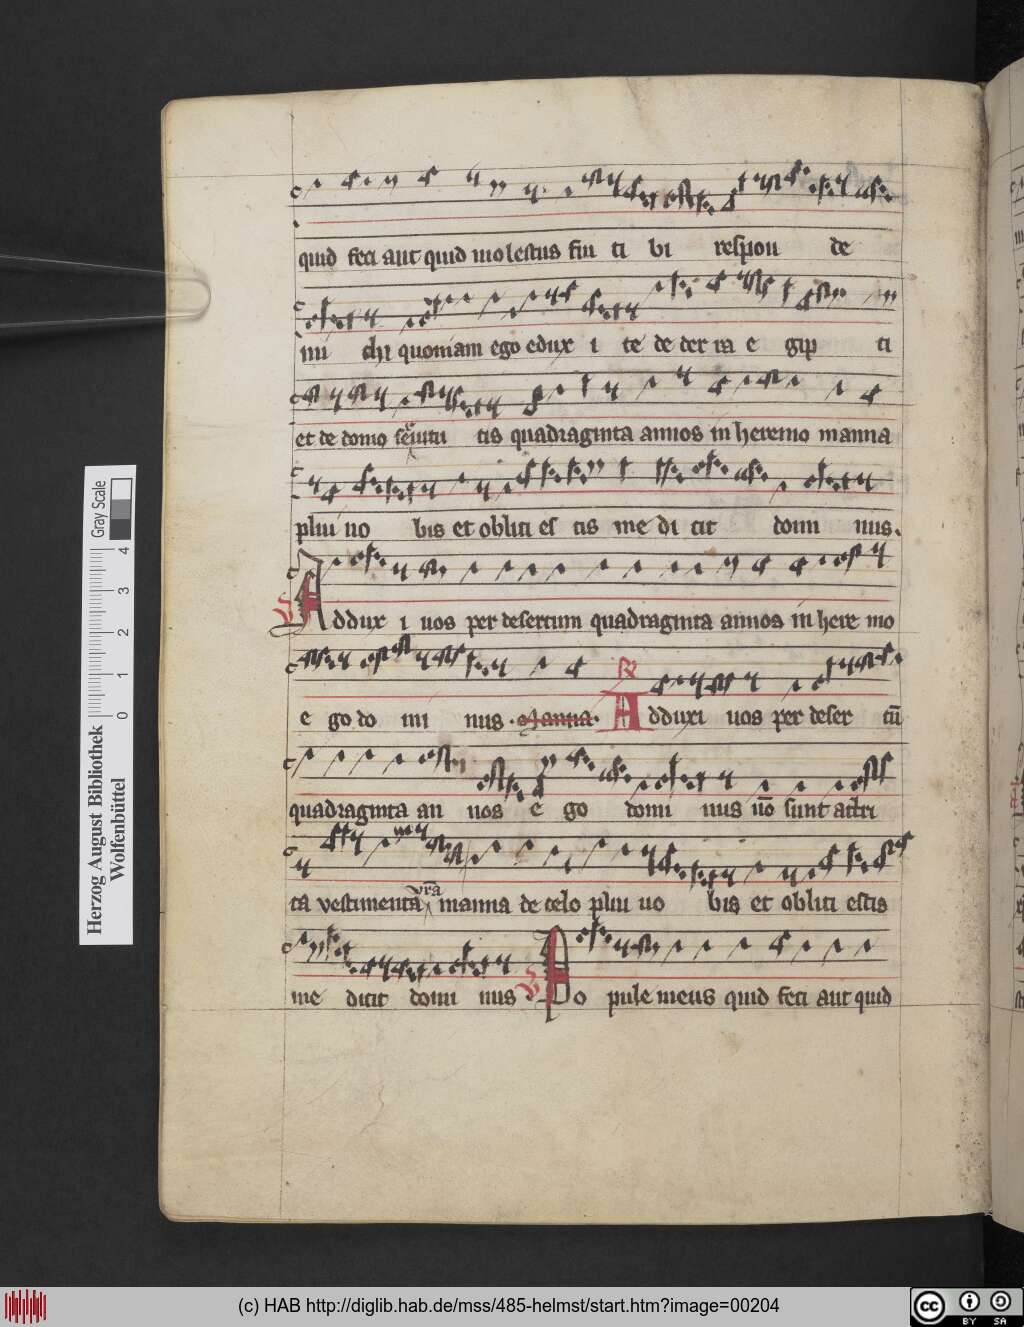 quid feci aut quid molestus fui ti bi respon de
mi chi quoniam ego edux i te de ter ra e gip ti
et de domo seruitu tis quadraginta annos in heremo manna
plui uo bis et obliti es tis me di cit domi nus.
V Addux i uos per desertum quadraginta annos in here mo
e go do mi nus. Manna. R Adduxi uos per deser tū
quadraginta an nos e go domi nus nō sunt attri
ta vestimenta vr̄a manna de celo plui uo bis et obliti estis
me dicit domi nus V Po pule meus quid feci aut quid
Gray Scale
4
3
2
1
0
Herzog August Bibliothek
Wolfenbüttel
(c) HAB http://diglib.hab.de/mss/485-helmst/start.htm?image=00204
cc BY SA